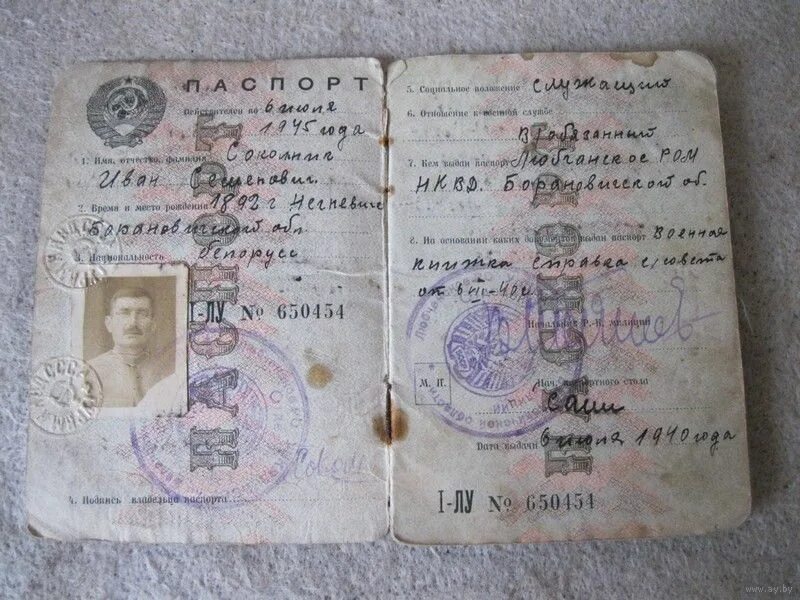 ПАСПОРТ
Действителен по 6 июля
1945 года
1. Имя, отчество, фамилия Соколник
Иван Семенович.
2. Время и место рождения 1892 г Негневичи
Барановичской обл
3. Национальность белорусс
I-ЛУ № 650454
4. Подпись владельца паспорта
5. Социальное положение служащий
6. Отношение к военной службе
В/обязанный
7. Кем выдан паспорт Любчанское РОМ
НКВД. Барановичской об.
8. На основании каких документов выдан паспорт Военная
книжка справка с/совета
от 6/VII-40г
Начальник Р.-К. милиции
М. П.
Нач. паспортного стола
Дата выдачи 6 июля 1940 года
I-ЛУ № 650454
ПАСПОРТ
www.ay.by